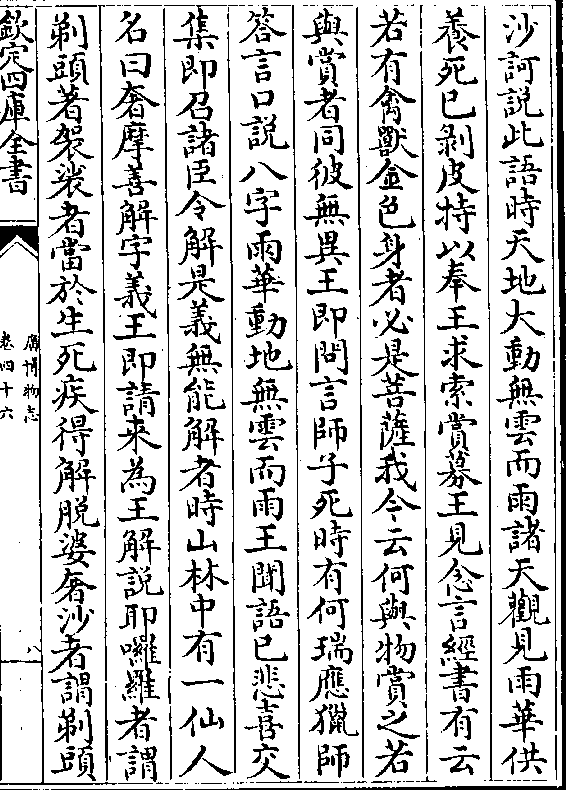 沙訶説此語時天地大動無雲而雨諸天觀見雨華供
養死已剝皮特以奉王求索賞募王見念言經書有云
若有禽獸金色身者必是菩薩我今云何與物賞之若
與賞者同彼無異王即問言師子死時有何瑞應獵師
答言口説八字雨華動地無雲而雨王聞語已悲喜交
集即召諸臣令解是義無能解者時山林中有一仙人
名曰奢摩善解字義王即請來為王解説耶囉羅者謂
剃頭著袈裟者當於生死疾得解脱婆奢沙者謂剃頭
欽定四庫全書
廣博物志
卷四十六
八